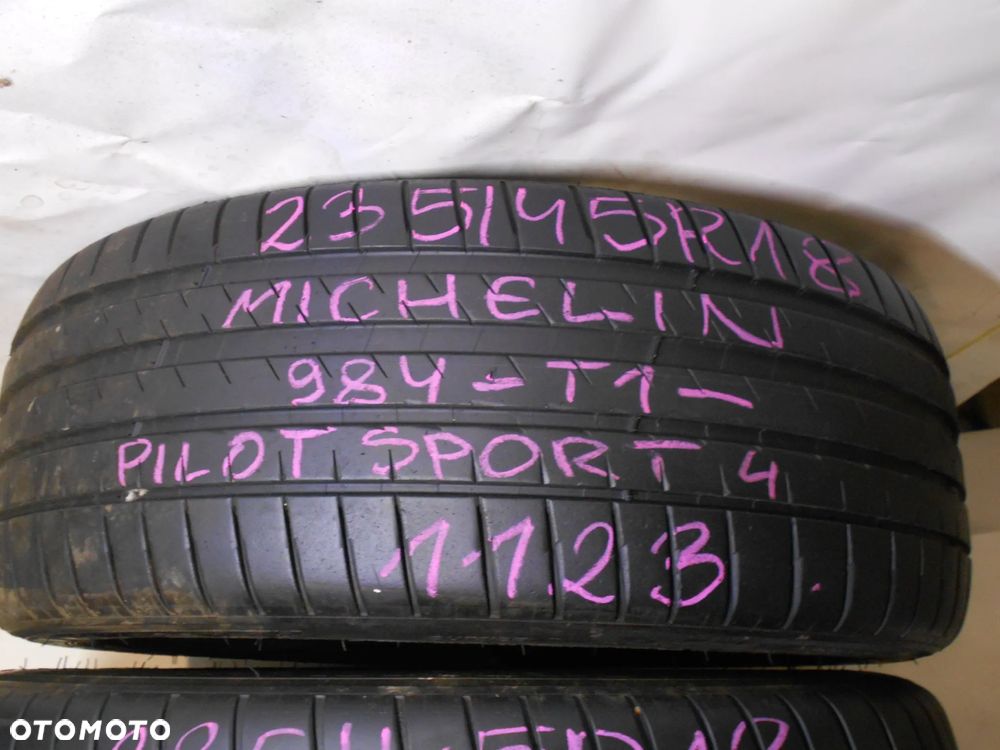 235/45R18
MICHELIN
98Y-T1-
PILOT SPORT 4
1123
OTOMOTO